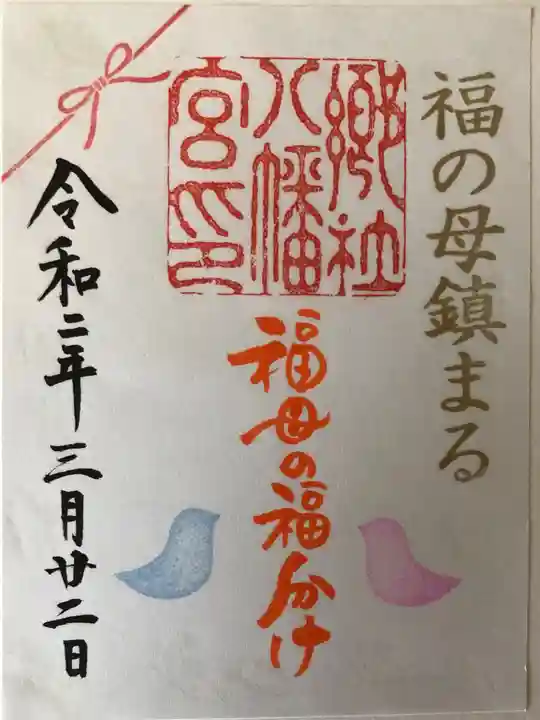 福の母鎮まる
郷社
八幡
宮印
福母の福分け
令和二年三月廿二日